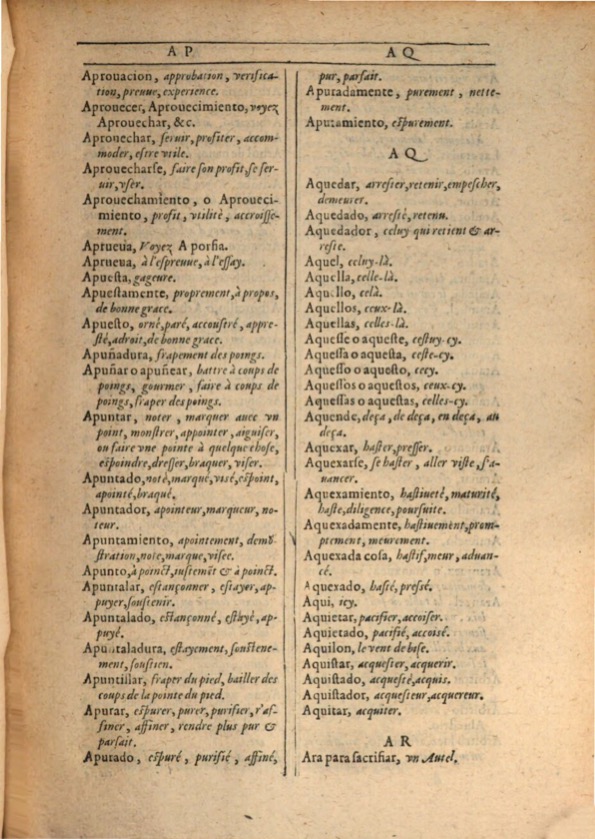 A P
Aprouacion, approbation, verifica-
tion, preuue, experience.
Aprouecer, Aprouecimiento, voyez
Aprouechar, &c.
Aprouechar, seruir, profiter, accom-
moder, estre vtile.
Aprouecharse, faire son profit, se ser-
uir, vser.
Aprouechamiento, o Aproueci-
miento, profit, vtilité, accroisse-
ment.
Aprueua, Voyez A porfia.
Aprueua, à l'espreuue, à l'essay.
Apuesta, gageure.
Apuestamente, proprement, à propos,
de bonne grace.
Apuesto, orné, paré, accoustré, appre-
sté, adroit, de bonne grace.
Apuñadura, frapement des poings.
Apuñar o apuñear, battre à coups de
poings, gourmer, faire à coups de
poings, fraper des poings.
Apuntar, noter, marquer auec vn
point, monstrer, appointer, aiguiser,
ou faire vne pointe à quelque chose,
espoindre, dresser, braquer, viser.
Apuntado, noté, marqué, visé, espoint,
apointé, braqué.
Apuntador, apointeur, marqueur, no-
teur.
Apuntamiento, apointement, demō-
stration, note, marque, visee.
Apunto, à poinct, iustemēt & à poinct.
Apuntalar, estançonner, estayer, ap-
puyer, soustenir.
Apuntalado, estançonné, estayé, ap-
puyé.
Apuntaladura, estayement, soustene-
ment, soustien.
Apuntillar, fraper du pied, bailler des
coups de la pointe du pied.
Apurar, espurer, purer, purifier, r'af-
finer, affiner, rendre plus pur &
parfait.
Apurado, espuré, purifié, affiné,
A Q
pur, parfait.
Apuradamente, purement, nette-
ment.
Apuramiento, espurement.
A Q
Aquedar, arrester, retenir, empescher,
demeurer.
Aquedado, arresté, retenu.
Aquedador, celuy qui retient & ar-
reste.
Aquel, celuy-là.
Aquella, celle-là.
Aquello, celà.
Aquellos, ceux-là.
Aquellas, celles-là.
Aquesse o aqueste, cestuy-cy.
Aquessa o aquesta, ceste-cy.
Aquesso o aquesto, cecy.
Aquessos o aquestos, ceux-cy.
Aquessas o aquestas, celles-cy.
Aquende, deça, de deça, en deça, au
deça.
Aquexar, haster, presser.
Aquexarse, se haster, aller viste, s'a-
uancer.
Aquexamiento, hastiueté, maturité,
haste, diligence, poursuite.
Aquexadamente, hastiuement, prom-
ptement, meurement.
Aquexada cosa, hastif, meur, aduan-
cé.
Aquexado, hasté, pressé.
Aqui, icy.
Aquietar, pacifier, accoiser.
Aquietado, pacifié, accoisé.
Aquilon, le vent de bise.
Aquistar, acquester, acquerir.
Aquistado, acquesté, acquis.
Aquistador, acquesteur, acquereur.
Aquitar, acquiter.
A R
Ara para sacrifiar, vn Autel.